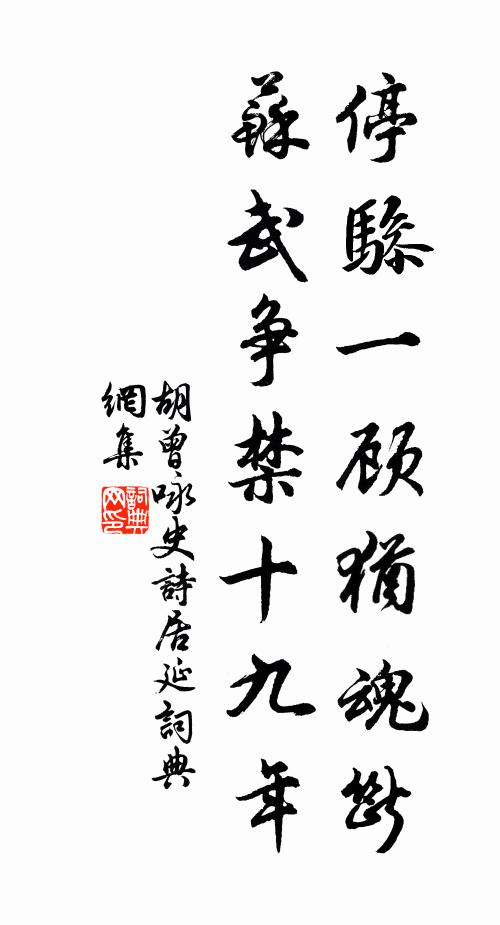 停驂一顾猶魂斷
蘇武争禁十九年
胡曾咏史詩居延詞典
網集
詞典
网印